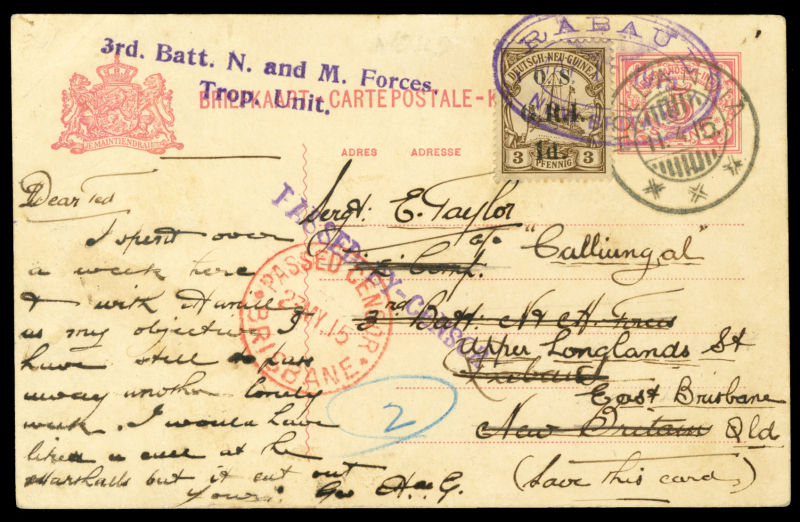 3rd. Batt. N. and M. Forces.
Trop. Unit.
JE MAINTIENDRAI
BRIEFKAART - CARTE POSTALE-K
ADRES ADRESSE
RABAUL
DEUTSCH-NEU-GUINEA
O. S.
G.R.I.
1d.
3 PFENNIG 3
PASSED BY CENSOR
PASSED CENSOR
BRISBANE
Dear Ted
I spent over
a week here
& with
as my objective I
have still to pass
away another lonely
week. I would have
liked a call at the
Marshalls but it cut out
Yours
Sergt. E. Taylor
c/o "Calliungal"
3rd Batt. N & M. Forces
Upper Longlands St
Rabaul
East Brisbane
New Britain Qld
(Save this card)
2